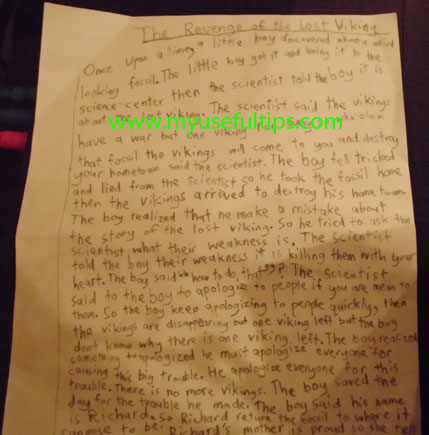 The Revenge of the Lost Viking
Once upon a timing a little boy discovered about a weird
looking fossil. The little boy got it and bring it to the
science center then the scientist told the boy it is
about the lost viking. The scientist said the vikings
have a war but one viking claim
www.myusefultips.com
that fossil the vikings will come to you and destroy
your hometown said the scientist. The boy fell tricked
and lied from the scientist so he took the fossil home
then the vikings arrived to destroy his hometown.
The boy realized that he make a mistake about
the story of the lost viking. So he tried to ask the
scientist what their weakness is. The scientist
told the boy their weakness it is killing them with your
heart. The boy said "how to do that"? The scientist
said to the boy to apologize to people if you are mean to
them. So the boy keep apologizing to people quickly, then
the vikings are disappearing out one viking left but the boy
dont know why there is one viking left. The boy realized
something to apologized he must apologize everyone for
causing this big trouble. He apologize everyone for this
trouble. There is no more vikings. The boy saved the
day for the trouble he made. The boy said his name
is Richard, so Richard return the fossil to where it
suppose to be. Richard's mother is proud so she